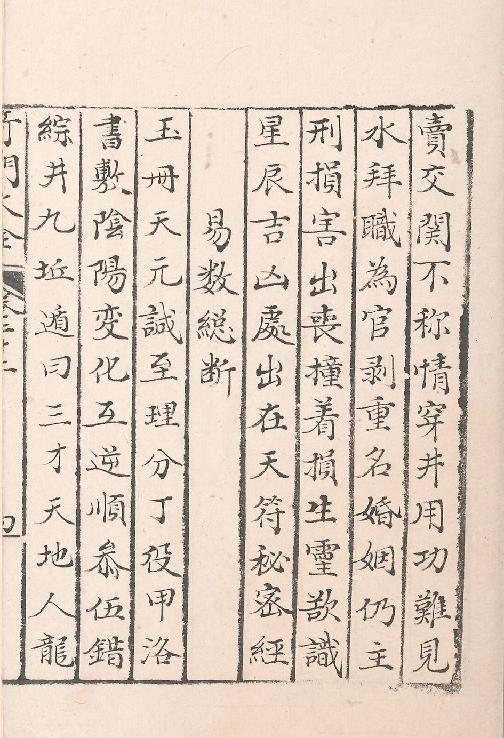 賣交関不称情穿井用功難見
水拜職為官剥重名婚姻仍主
刑損害出喪撞着損生霊欲識
星辰吉凶處出在天符秘密經
易数総断
玉冊天元誠至理分丁役甲洛
書敷陰陽变化互逆順叅伍錯
綜井九坵遁曰三才天地人龍
竒門大全